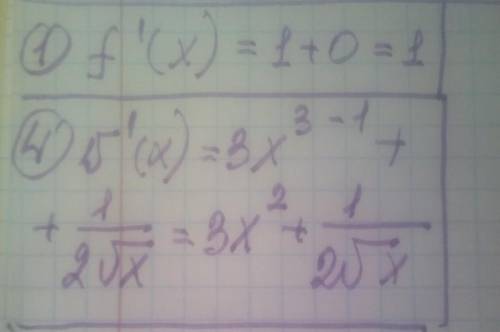 ① f'(x) = 1 + 0 = 1
④ v'(x) = 3x^{3-1} +
+ \frac{1}{2\sqrt{x}} = 3x^2 + \frac{1}{2\sqrt{x}}